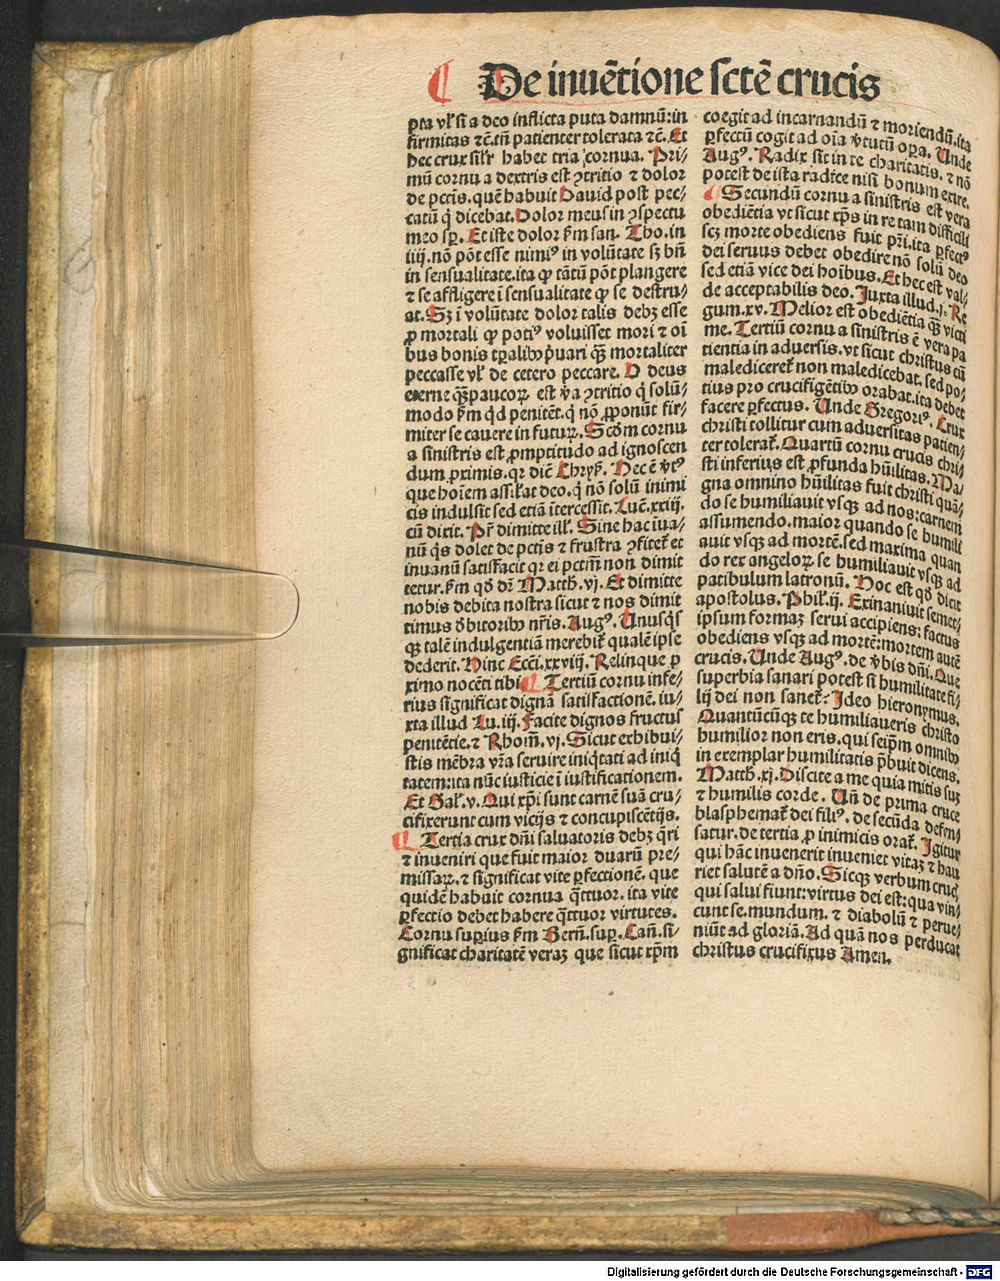 ¶ De inuẽtione sctẽ crucis
pta vl' si a deo inflicta puta damnũ: in
firmitas ⁊c̃. tñ patienter tolerata ⁊c̃. Et
hec crux sil'r habet tria cornua. Pri⸗
mũ cornu a dextris est ꝯtritio ⁊ dolor
de pctĩs. quẽ habuit Dauid post pec⸗
catũ q̃ dicebat. Dolor meus in ꝯspectu
meo sp̃. Et iste dolor ẜm san. Tho. in
iiij. nõ põt esse nimiꝰ in volũtate sꝫ bñ
in sensualitate. ita ꝙ tãtũ põt plangere
⁊ se affligere ĩ sensualitate ꝙ se destru⸗
at. Sꝫ ĩ volũtate dolor talis debꝫ esse
ꝓ mortali ꝙ potiꝰ voluisset mori ⁊ oĩ
bus bonis tꝑalibꝰ p̃uari q̃ꝫ mortaliter
peccasse vl' de cetero peccare. O deus
eterne q̃ꝫ paucoꝝ est v̾a ꝯtritio q̃ solũ⸗
modo ẜm q̃d penitẽt. q̃ nõ ꝓponũt fir⸗
miter se cauere in futuꝝ. Scd̃m cornu
a sinistris est ꝓmptitudo ad ignoscen
dum ꝓximis. qr dic̃ Chrys̾. Hec ẽ v̾tꝰ
que hoĩem assil'at deo. q̃ nõ solũ inimi
cis indulsit sed etiã ĩtercessit. Luc̃. xxiij.
cũ dixit. Pr̃ dimitte ill'. Sine hac iua⸗
nũ q̃s dolet de pctĩs ⁊ frustra ꝯfitet̾ et
inuanũ satisfacit qr ei pctm̃ non dimit
tetur. ẜm qd̾ dr̃ Matth̾. vj. Et dimitte
nobis debita nostra sicut ⁊ nos dimit
timus d̾bitoribꝰ nr̃is. Augꝰ. Unusq̃s
qꝫ talẽ indulgentiã merebit̾ qualẽ ipse
dederit. Hinc Ecc̃i. xxviij. Relinque ꝓ
ximo nocẽti tibi ¶ Tertiũ cornu infe⸗
rius significat dignã satisfactionẽ. iu⸗
xta illud Lu. iij. Facite dignos fructus
penitẽtie. ⁊ Rhom̃. vj. Sicut exhibui⸗
stis mẽbra vr̃a seruire iniq̃tati ad iniq̃
tatem: ita nũc iusticie ĩ iustificationem.
Et Gal'. v. Qui xp̃i sunt carnẽ suã cru⸗
cifixerunt cum vicijs ⁊ concupiscẽtijs.
¶ Tertia crux dñi saluatoris debꝫ q̃ri
⁊ inueniri que fuit maior duarũ pre⸗
missaꝝ. ⁊ significat vite ꝑfectionẽ. que
quidẽ habuit cornua q̃ttuor. ita vite
ꝑfectio debet habere q̃ttuor virtutes.
Cornu supius ẜm Bern̾. sup̱. Cañ. si⸗
gnificat charitatẽ veraꝫ que sicut xp̃m
coegit ad incarnandũ ⁊ moriendũ. ita
ꝑfectũ cogit ad oĩa v̾tutũ oꝑa. Unde
Augꝰ. Radix sit in te charitatis. ⁊ nõ
potest de ista radice nisi bonum exire.
¶ Secundũ cornu a sinistris est vera
obediẽtia vt sicut xp̃s in re tam difficili
scꝫ morte obediens fuit pr̃i. ita ꝑfectꝰ
dei seruus debet obedire nõ solũ deo
sed etiã vice dei hoĩbus. Et hec est val⸗
de acceptabilis deo. Juxta illud. j. Re
gum. xv. Melior est obediẽtia q̃ꝫ victi
me. Tertiũ cornu a sinistris ẽ vera pa
tientia in aduersis. vt sicut christus cũ
malediceret̾ non maledicebat. sed po⸗
tius pro crucifigẽtibꝰ orabat. ita debet
facere ꝑfectus. Unde Gregoriꝰ. Crux
christi tollitur cum aduersitas patien⸗
ter tolerat̾. Quartũ cornu crucis chri⸗
sti inferius est ꝓfunda hũilitas. Ma⸗
gna omnino hũilitas fuit christi quã⸗
do se humiliauit vsqꝫ ad nos: carnem
assumendo. maior quando se humili
auit vsqꝫ ad mortẽ. sed maxima quan
do rex angeloꝝ se humiliauit vsqꝫ ad
patibulum latronũ. Hoc est qd̾ dicit
apostolus. Phil'. ij. Exinaniuit semet⸗
ipsum formaꝫ serui accipiens: factus
obediens vsqꝫ ad mortẽ: mortem autẽ
crucis. Unde Augꝰ. de v̾bis dñi. Que
superbia sanari potest si humilitate fi⸗
lij dei non sanet̾? Ideo hieronymus,
Quantũcũqꝫ te humiliaueris christo
humilior non eris. qui seip̃m omnibꝰ
in exemplar humilitatis p̃buit dicens.
Matth̾. xj. Discite a me quia mitis suꝫ
⁊ humilis corde. Uñ de prima cruce
blasphemat̾ dei filiꝰ. de secũda defen⸗
satur. de tertia ꝓ inimicis orat̾. Igitur
qui hãc inuenerit inueniet vitaꝫ ⁊ hau
riet salutẽ a dño. Sicqꝫ verbum cruc̾
qui salui fiunt: virtus dei est: qua vin⸗
cunt se. mundum. ⁊ diabolũ ⁊ perue⸗
niũt ad gloriã. Ad quã nos perducat
christus crucifixus Amen.
Digitalisierung gefördert durch die Deutsche Forschungsgemeinschaft - DFG